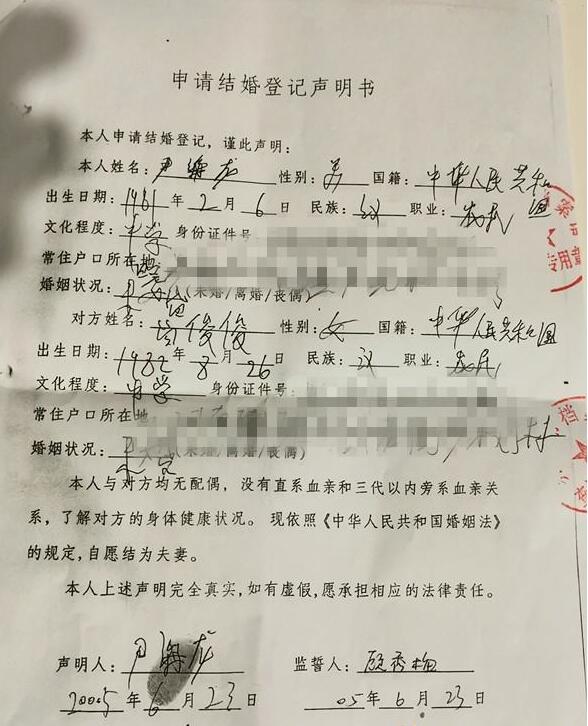 申请结婚登记声明书
本人申请结婚登记，谨此声明：
本人姓名：尹 龙 性别：男 国籍：中华人民共和国
出生日期：1981年2月6日 民族：汉 职业：农民
文化程度：中学 身份证件号
常住户口所在地
婚姻状况：(未婚/离婚/丧偶)
对方姓名：俊俊 性别：女 国籍：中华人民共和国
出生日期：1982年8月26日 民族：汉 职业：农民
文化程度：中学 身份证件号
常住户口所在地 村
婚姻状况：(未婚/离婚/丧偶)
本人与对方均无配偶，没有直系血亲和三代以内旁系血亲关
系，了解对方的身体健康状况。现依照《中华人民共和国婚姻法》
的规定，自愿结为夫妻。
本人上述声明完全真实，如有虚假，愿承担相应的法律责任。
声明人：尹 龙 监誓人：顾秀梅
2005年6月23日 05年6月23日
专用章
档